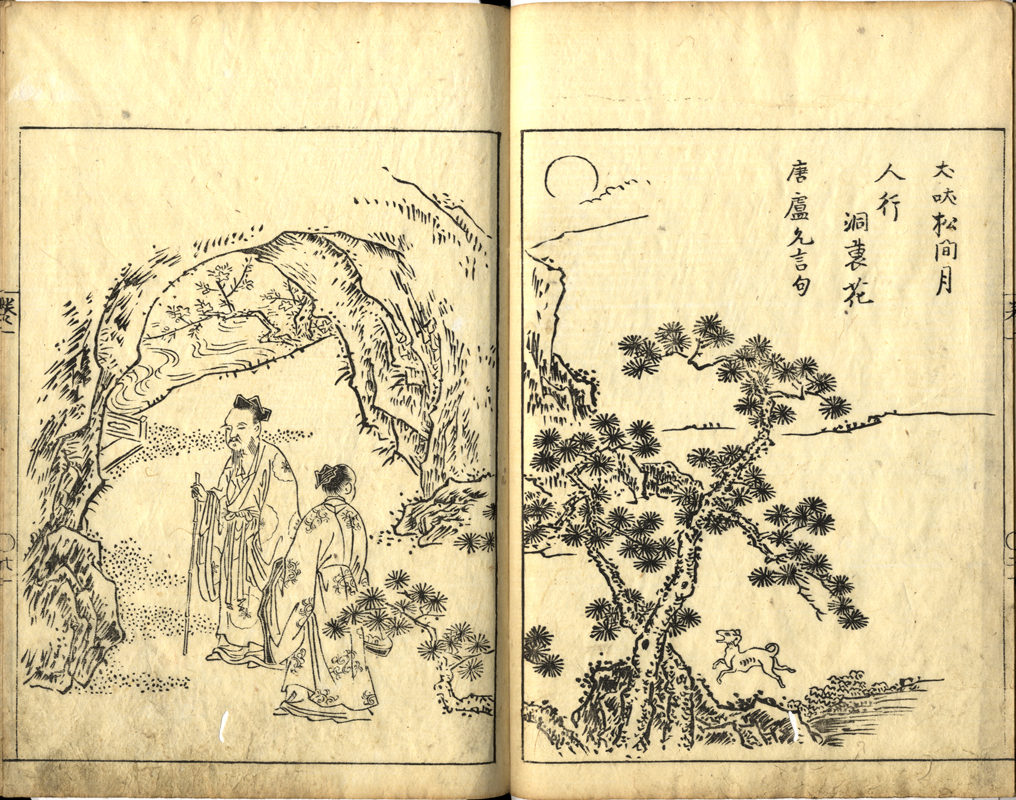 犬吠松間月
人行
洞裏花
唐盧允言句